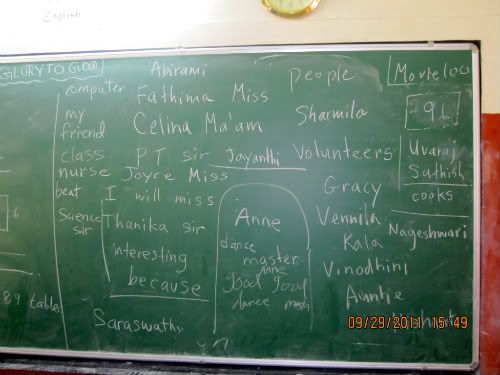 English
GLORY TO GOD
Abirami
People
computer
Fathima Miss
my
friend
Celina Ma'am
Sharmila
91
class
PT sir
Jayanthi
Volunteers
Uvaraj
Sathish
nurse
Joyce Miss
cooks
beat
I will miss
Gracy
Science
sir
Thanika sir
Anne
Vennila
Nageshwari
interesting
because
dance
master
Anne
good good
dance
Kala
Vinodhini
Auntie
6
89 tables
Saraswathy
09/29/2011 15:49